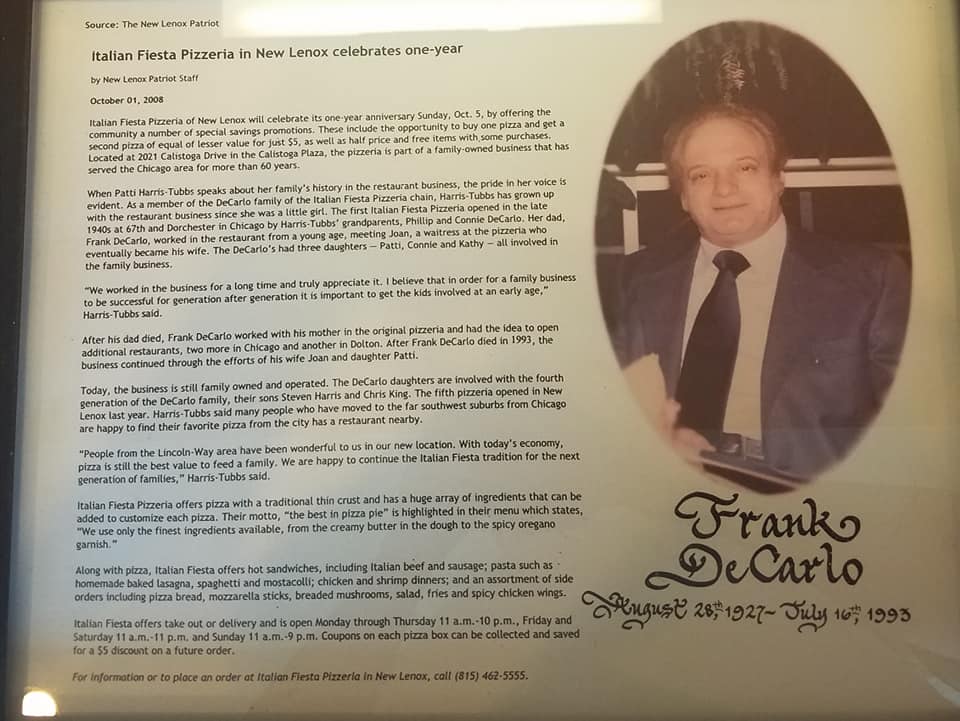 Source: The New Lenox Patriot
Italian Fiesta Pizzeria in New Lenox celebrates one-year
by New Lenox Patriot Staff
October 01, 2008
Italian Fiesta Pizzeria of New Lenox will celebrate its one-year anniversary Sunday, Oct. 5, by offering the
community a number of special savings promotions. These include the opportunity to buy one pizza and get a
second pizza of equal of lesser value for just $5, as well as half price and free items with some purchases.
Located at 2021 Calistoga Drive in the Calistoga Plaza, the pizzeria is part of a family-owned business that has
served the Chicago area for more than 60 years.
When Patti Harris-Tubbs speaks about her family's history in the restaurant business, the pride in her voice is
evident. As a member of the DeCarlo family of the Italian Fiesta Pizzeria chain, Harris-Tubbs has grown up
with the restaurant business since she was a little girl. The first Italian Fiesta Pizzeria opened in the late
1940s at 67th and Dorchester in Chicago by Harris-Tubbs' grandparents, Phillip and Connie DeCarlo. Her dad,
Frank DeCarlo, worked in the restaurant from a young age, meeting Joan, a waitress at the pizzeria who
eventually became his wife. The DeCarlo's had three daughters — Patti, Connie and Kathy — all involved in
the family business.
"We worked in the business for a long time and truly appreciate it. I believe that in order for a family business
to be successful for generation after generation it is important to get the kids involved at an early age,"
Harris-Tubbs said.
After his dad died, Frank DeCarlo worked with his mother in the original pizzeria and had the idea to open
additional restaurants, two more in Chicago and another in Dolton. After Frank DeCarlo died in 1993, the
business continued through the efforts of his wife Joan and daughter Patti.
Today, the business is still family owned and operated. The DeCarlo daughters are involved with the fourth
generation of the DeCarlo family, their sons Steven Harris and Chris King. The fifth pizzeria opened in New
Lenox last year. Harris-Tubbs said many people who have moved to the far southwest suburbs from Chicago
are happy to find their favorite pizza from the city has a restaurant nearby.
"People from the Lincoln-Way area have been wonderful to us in our new location. With today's economy,
pizza is still the best value to feed a family. We are happy to continue the Italian Fiesta tradition for the next
generation of families," Harris-Tubbs said.
Italian Fiesta Pizzeria offers pizza with a traditional thin crust and has a huge array of ingredients that can be
added to customize each pizza. Their motto, "the best in pizza pie" is highlighted in their menu which states,
"We use only the finest ingredients available, from the creamy butter in the dough to the spicy oregano
garnish."
Along with pizza, Italian Fiesta offers hot sandwiches, including Italian beef and sausage; pasta such as
homemade baked lasagna, spaghetti and mostacolli; chicken and shrimp dinners; and an assortment of side
orders including pizza bread, mozzarella sticks, breaded mushrooms, salad, fries and spicy chicken wings.
Italian Fiesta offers take out or delivery and is open Monday through Thursday 11 a.m.-10 p.m., Friday and
Saturday 11 a.m.-11 p.m. and Sunday 11 a.m.-9 p.m. Coupons on each pizza box can be collected and saved
for a $5 discount on a future order.
For information or to place an order at Italian Fiesta Pizzeria in New Lenox, call (815) 462-5555.
Frank
DeCarlo
August 28th, 1927~ July 16th, 1993